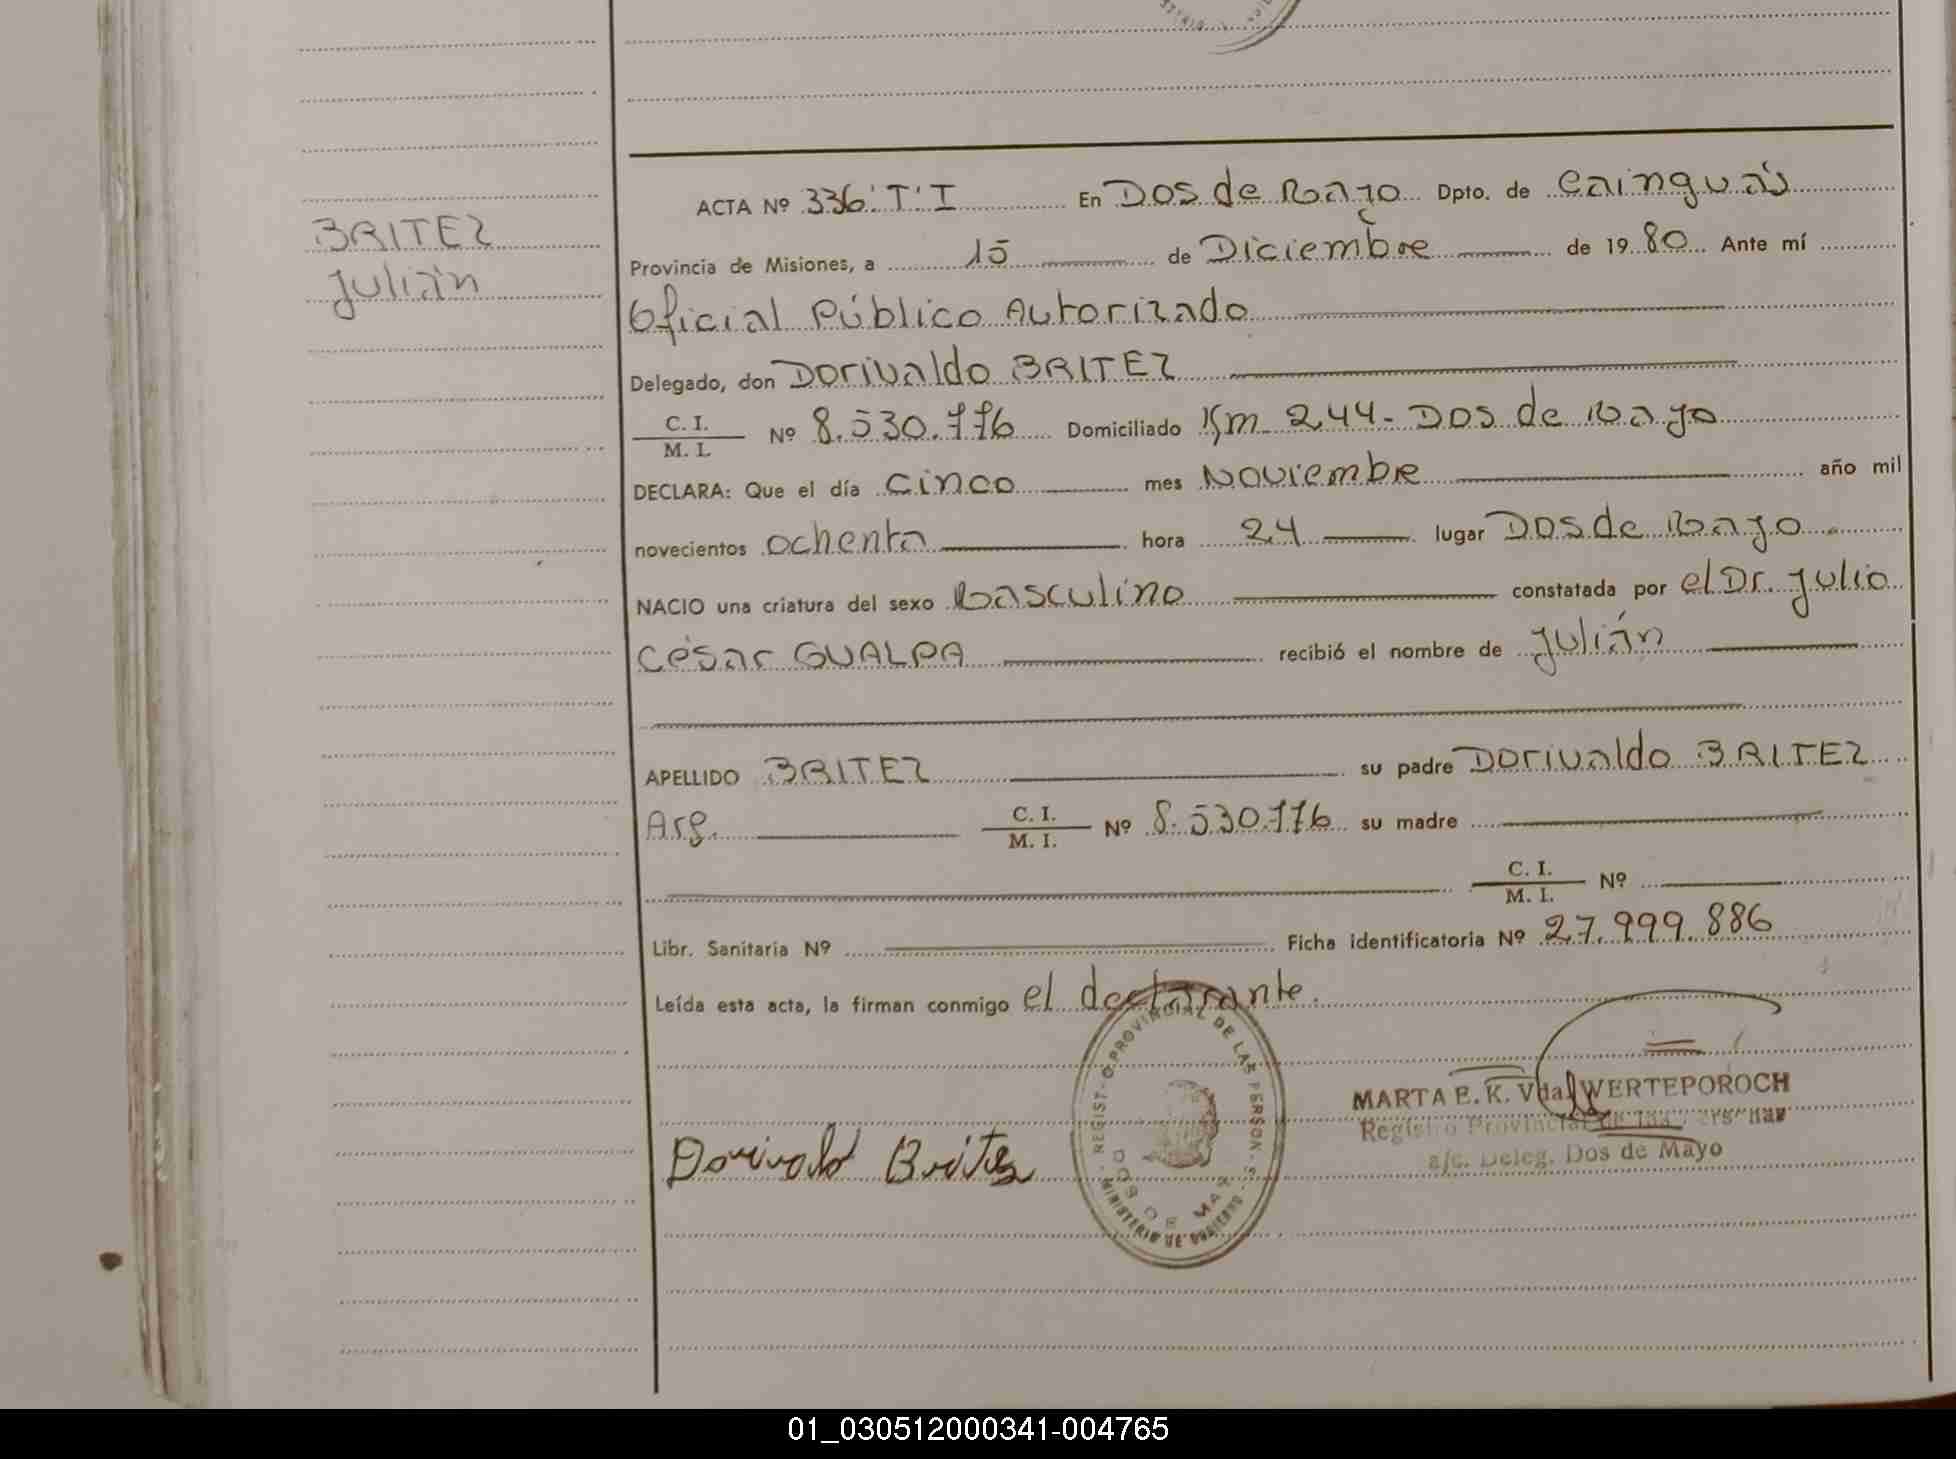 BRITEZ
Julián
ACTA Nº 336:T:I En Dos de Mayo Dpto. de Cainguás
Provincia de Misiones, a 15 de Diciembre de 1980 Ante mí
Oficial Público Autorizado
Delegado, don Dorivaldo BRITEZ
C. I.
M. I. Nº 8.530.776 Domiciliado Km 244- Dos de Mayo
DECLARA: Que el día cinco mes Noviembre año mil
novecientos ochenta hora 24 lugar Dos de Mayo
NACIO una criatura del sexo Masculino constatada por el Dr. Julio
César GUALPA recibió el nombre de Julián
APELLIDO BRITEZ su padre Dorivaldo BRITEZ
Arg. C. I.
M. I. Nº 8.530.776 su madre
C. I.
M. I. Nº
Libr. Sanitaria Nº Ficha identificatoria Nº 27.999.886
Leída esta acta, la firman conmigo el declarante.
Dorivaldo Britez
REGISTRO PROVINCIAL DE LAS PERSONAS
DOS DE MAYO
MINISTERIO DE GOBIERNO
MARTA E. K. Vda. WERTEPOROCH
Registro Provincial de las Personas
a/c. Deleg. Dos de Mayo
01_030512000341-004765